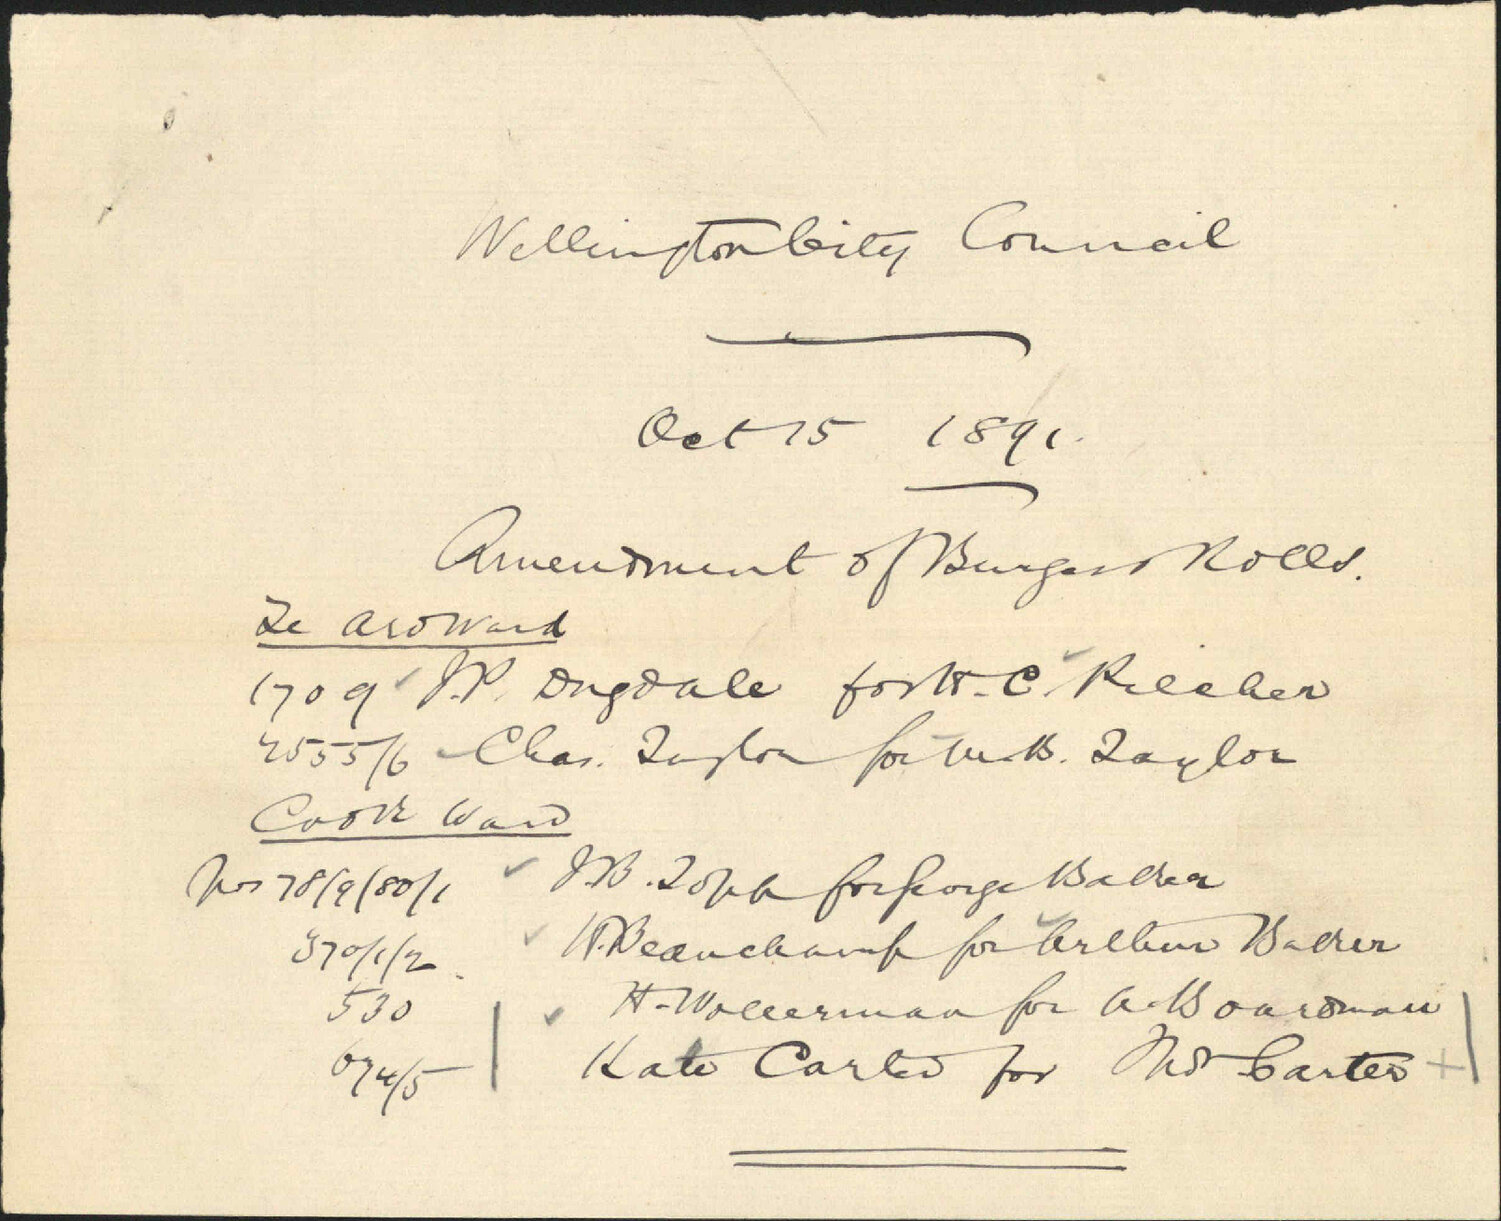 Wellington City Council
Oct 15 1891.
Amendment of Burgess Rolls.
Te Aro Ward
1709 J.P. Dugdale for H. C. Pilcher
2555/6 Chas. Taylor for W. B. Taylor
Cook Ward
Nos 78/9/80/1 J.B. Topp for George Baker
370/1/2 H. Beauchamp for Arthur Baker
530 H. Wollerman for A. Boardman
674/5 Kate Carter for Thos Carter +